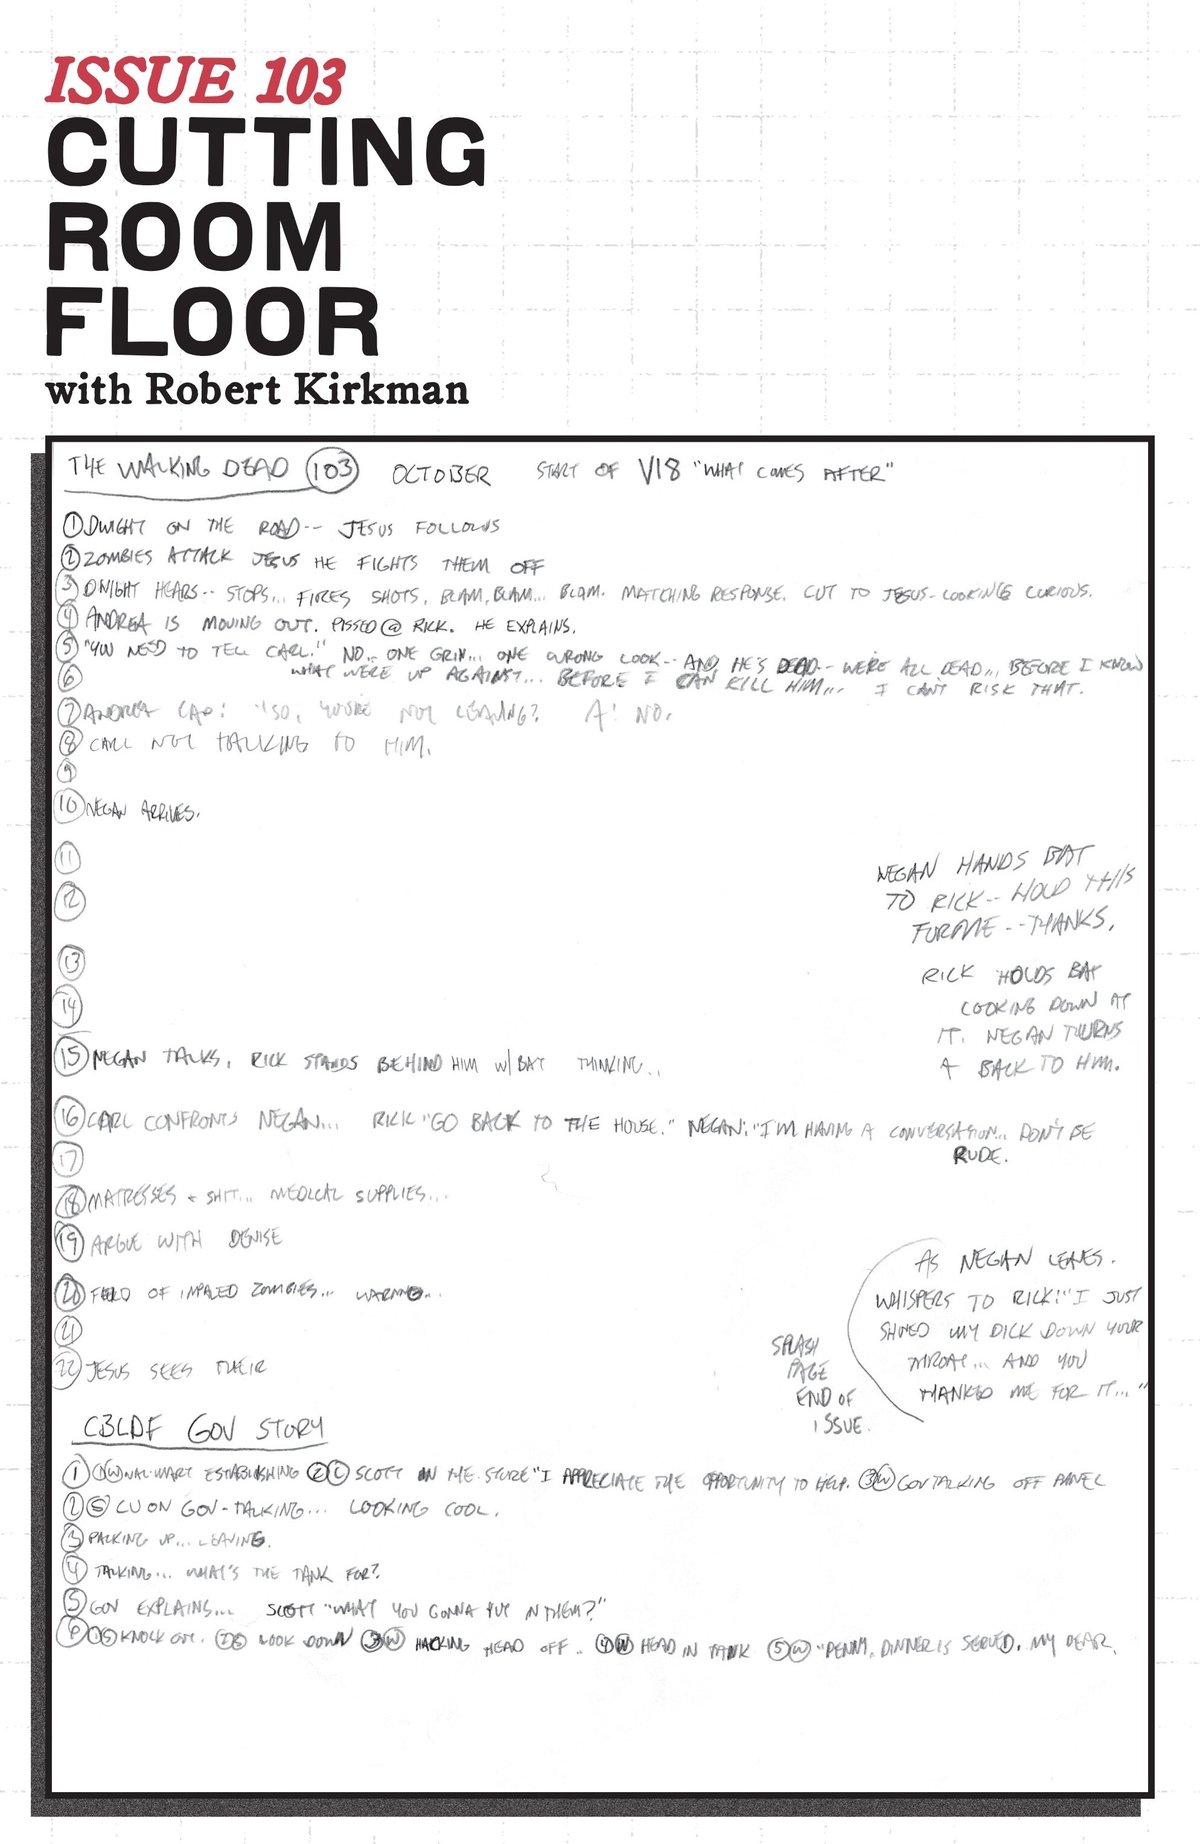 ISSUE 103
CUTTING
ROOM
FLOOR
with Robert Kirkman
THE WALKING DEAD 103 OCTOBER START OF V18 "WHAT COMES AFTER"
1 DWIGHT ON THE ROAD-- JESUS FOLLOWS
2 ZOMBIES ATTACK JESUS HE FIGHTS THEM OFF
3 DWIGHT HEARS-- STOPS... FIRES SHOTS, BLAM, BLAM... BLAM. MATCHING RESPONSE. CUT TO JESUS- LOOKING CURIOUS.
4 ANDREA IS MOVING OUT. PISSED @ RICK. HE EXPLAINS.
5 "YOU NEED TO TELL CARL." NO... ONE GRIN... ONE WRONG LOOK-- AND HE'S DEAD-- WE'RE ALL DEAD... BEFORE I KNOW
6 WHAT WE'RE UP AGAINST... BEFORE I CAN KILL HIM... I CAN'T RISK THAT.
7 ANDREA "SO, YOU'RE NOT LEAVING? A: NO.
8 CARL NOT TALKING TO HIM.
9
10 NEGAN ARRIVES.
11
12
NEGAN HANDS BAT
TO RICK-- HOLD THIS
FOR ME-- THANKS.
13
14
RICK HOLDS BAT
LOOKING DOWN AT
IT. NEGAN TURNS
A BACK TO HIM.
15 NEGAN TALKS, RICK STANDS BEHIND HIM W/ BAT THINKING..
16 CARL CONFRONTS NEGAN... RICK "GO BACK TO THE HOUSE." NEGAN: "I'M HAVING A CONVERSATION... DON'T BE
RUDE.
17
18 MATRESSES + SHIT... MEDICAL SUPPLIES...
19 ARGUE WITH DENISE
20 FIELD OF IMPALED ZOMBIES... WARNING..
21
22 JESUS SEES THEIR
AS NEGAN LEAVES.
WHISPERS TO RICK: "I JUST
SHOVED MY DICK DOWN YOUR
THROAT... AND YOU
THANKED ME FOR IT..."
SPLASH
PAGE
END OF
ISSUE.
CBLDF GOV STORY
1 1 W WAL-MART ESTABLISHING 2 C SCOTT IN THE STORE "I APPRECIATE THE OPPORTUNITY TO HELP. 3 W GOV TALKING OFF PANEL
2 S CU ON GOV- TALKING... LOOKING COOL.
3 PACKING UP... LEAVING.
4 TALKING... WHAT'S THE TANK FOR?
5 GOV EXPLAINS... SCOTT "WHAT YOU GONNA PUT IN THEM?"
6 1 S KNOCK OUT. 2 S LOOK DOWN 3 W HACKING HEAD OFF.. 4 W HEAD IN TANK 5 W "PENNY, DINNER IS SERVED, MY DEAR.